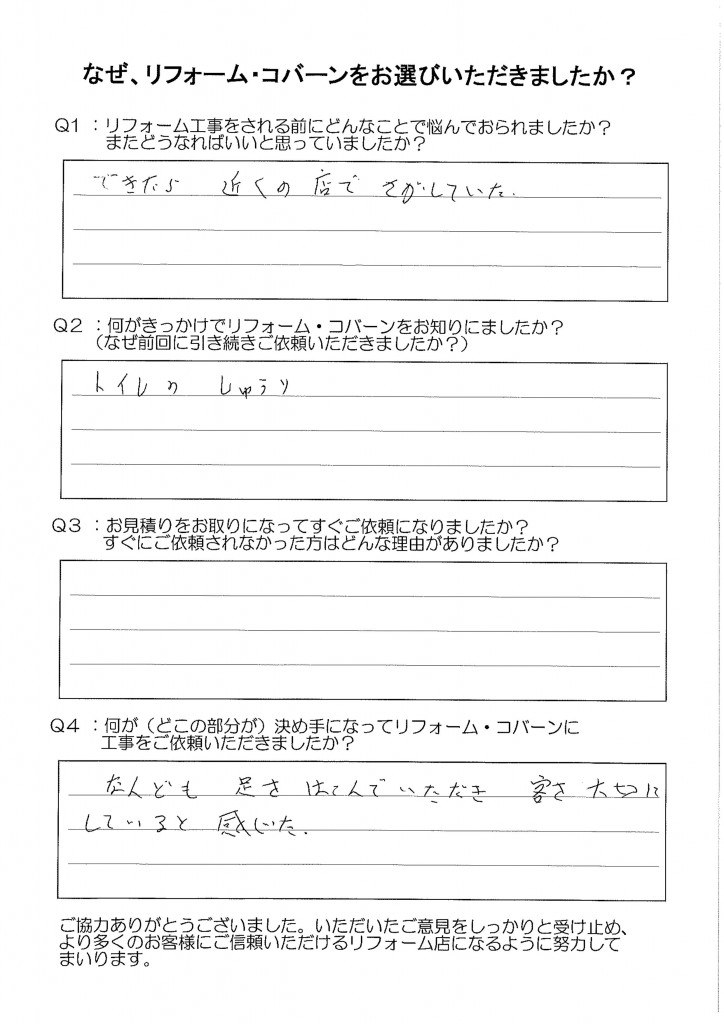 なぜ、リフォーム・コバーンをお選びいただきましたか？
Q1：リフォーム工事をされる前にどんなことで悩んでおられましたか？
またどうなればいいと思っていましたか？
できたら 近くの店で さがしていた.
Q2：何がきっかけでリフォーム・コバーンをお知りにましたか？
（なぜ前回に引き続きご依頼いただきましたか？）
トイレの しゅうり
Q3：お見積りをお取りになってすぐご依頼になりましたか？
すぐにご依頼されなかった方はどんな理由がありましたか？
Q4：何が（どこの部分が）決め手になってリフォーム・コバーンに
工事をご依頼いただきましたか？
なんども 足を はこんでいただき 客を 大切に
していると 感じた.
ご協力ありがとうございました。いただいたご意見をしっかりと受け止め、
より多くのお客様にご信頼いただけるリフォーム店になるように努力して
まいります。